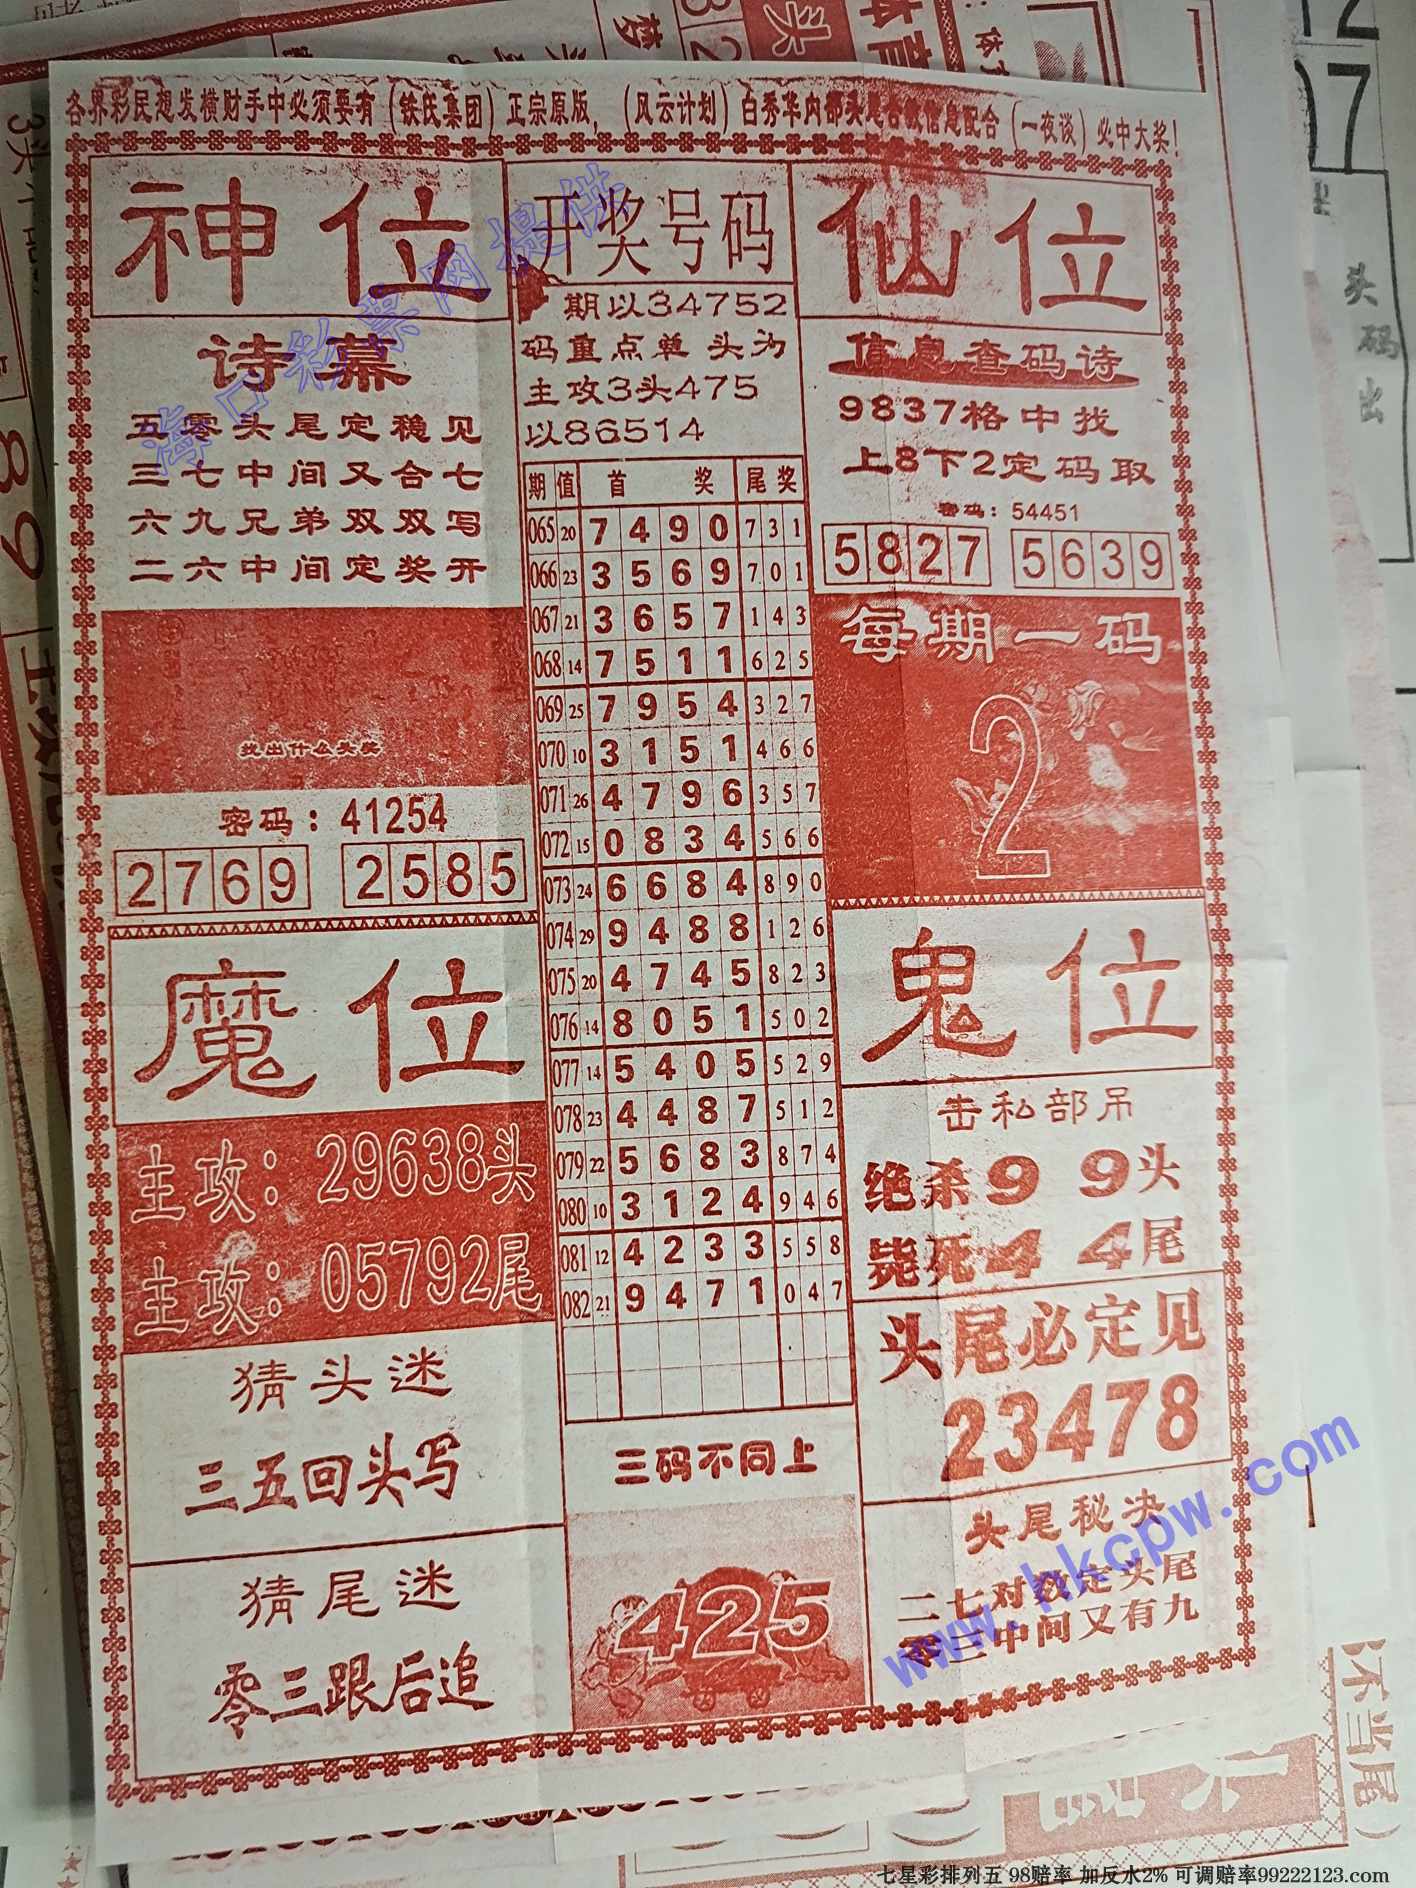 各界彩民想发横财手中必须要有（铁氏集团）正宗原版，（风云计划）白秀华内部头尾合数信息配合（一夜谈）必中大奖！
神位
诗幕
五零头尾定稳见
三七中间又合七
六九兄弟双双写
二六中间定奖开
找出什么头奖
密码：41254
2769 2585
魔位
主攻：29638头
主攻：05792尾
猜头迷
三五回头写
猜尾迷
零三跟后追
开奖号码
期以34752
码重点单头为
主攻3头475
以86514
期 值 首奖 尾奖
065 20 7 4 9 0 7 3 1
066 23 3 5 6 9 7 0 1
067 21 3 6 5 7 1 4 3
068 14 7 5 1 1 6 2 5
069 25 7 9 5 4 3 2 7
070 10 3 1 5 1 4 6 6
071 26 4 7 9 6 3 5 7
072 15 0 8 3 4 5 6 6
073 24 6 6 8 4 8 9 0
074 29 9 4 8 8 1 2 6
075 20 4 7 4 5 8 2 3
076 14 8 0 5 1 5 0 2
077 14 5 4 0 5 5 2 9
078 23 4 4 8 7 5 1 2
079 22 5 6 8 3 8 7 4
080 10 3 1 2 4 9 4 6
081 12 4 2 3 3 5 5 8
082 21 9 4 7 1 0 4 7
三码不同上
425
仙位
信息查码诗
9837格中找
上8下2定码取
密码：54451
5827 5639
每期一码
2
鬼位
击私部吊
绝杀9 9头
毙死4 4尾
头尾必定见
23478
头尾秘决
二七对数定头尾
零三中间又有九
海口彩票网提供
www.hkcpw.com
头码出
(不当尾)
七星彩排列五 98赔率 加反水2% 可调赔率99222123.com